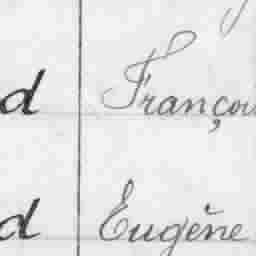 d Françoi
d Eugène